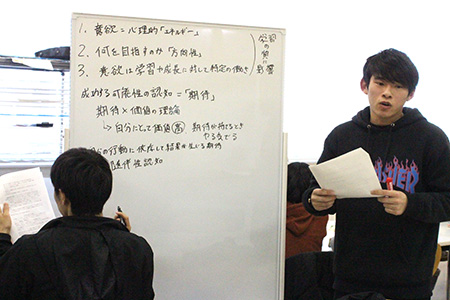 1. 意欲 = 心理的「エネルギー」
2. 何を目指すのか「方向性」
3. 意欲は学習や成長に対して特定の働き
学習の質に影響
成功する可能性の認知 = 「期待」
期待 × 価値の理論
→ 自分にとって価値 高 期待が持てるとき
やる気でる
の行動に依存して結果が生じる期待
随伴性認知
SHER